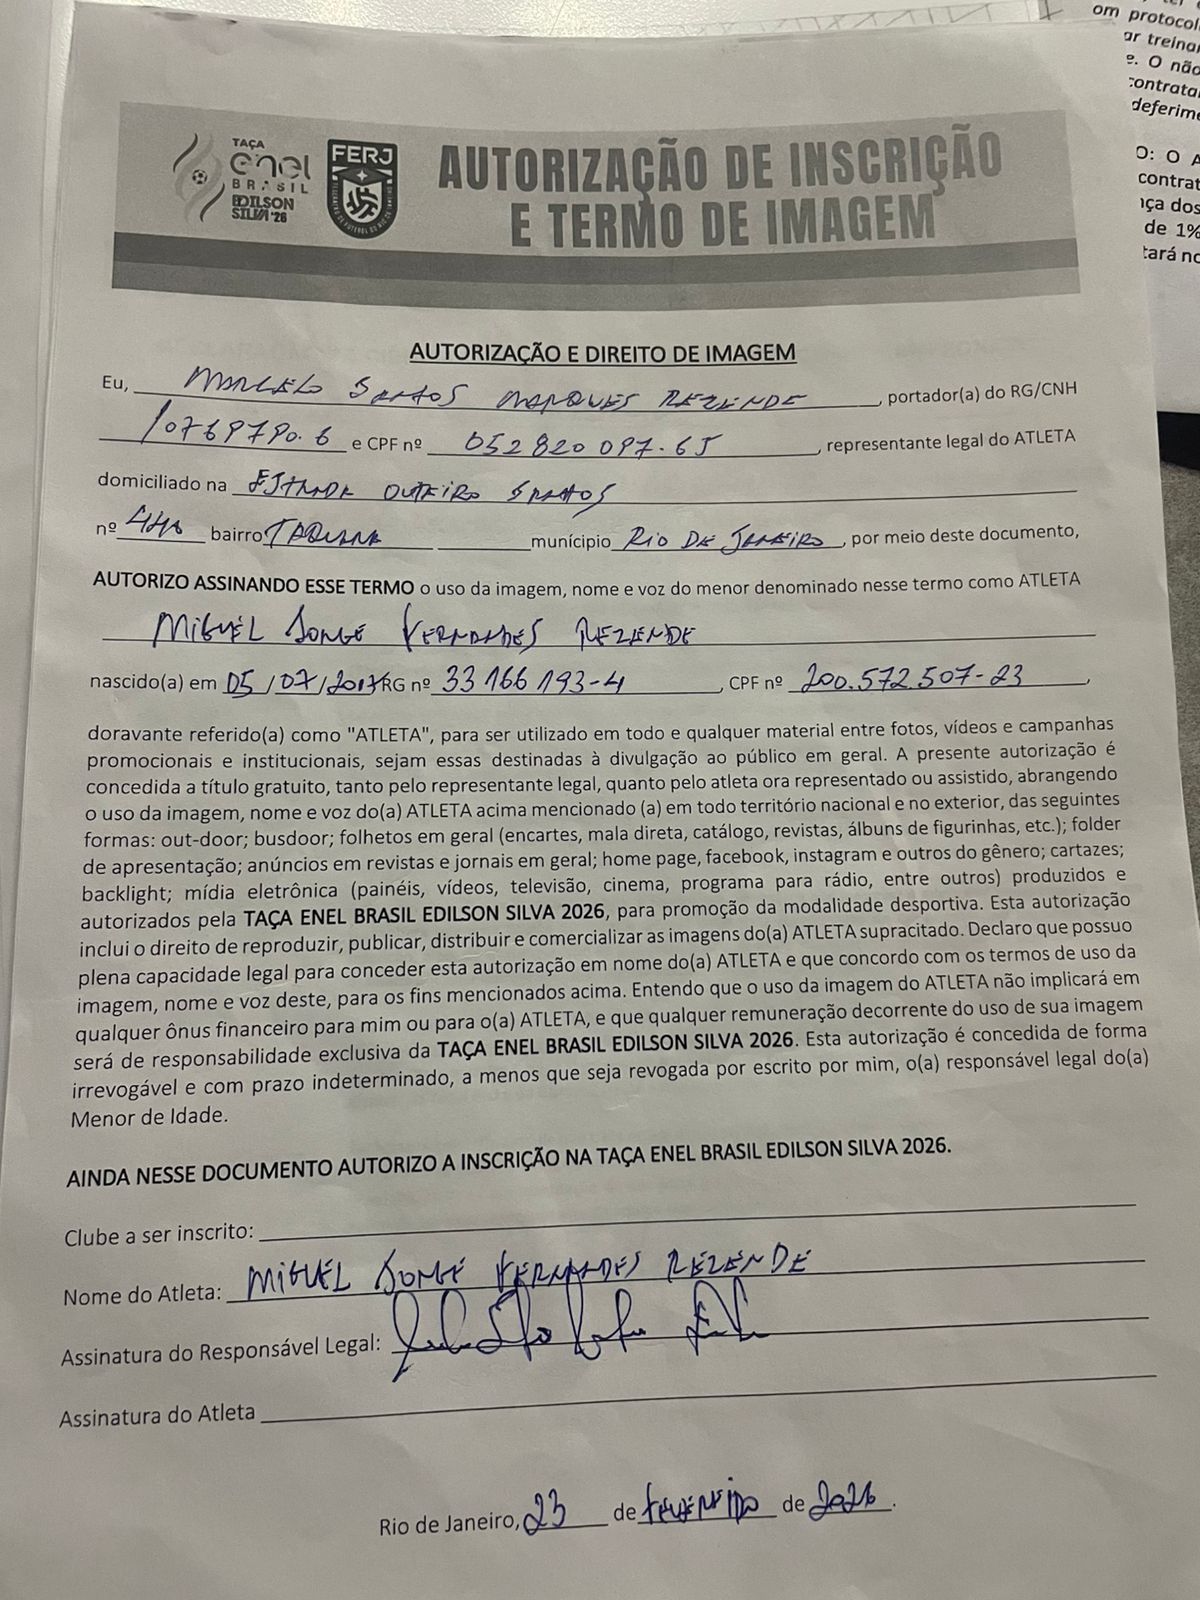 om protocol
ar treinar
e. O não
contrata
deferime
O: O A
contrat
nça dos
de 1%
tará no
TAÇA
enel
BRASIL
EDILSON
SILVA'26
FERJ
FEDERAÇÃO DE FUTEBOL DO RIO DE JANEIRO
AUTORIZAÇÃO DE INSCRIÇÃO
E TERMO DE IMAGEM
AUTORIZAÇÃO E DIREITO DE IMAGEM
Eu, MARCELO SANTOS MARQUES REZENDE, portador(a) do RG/CNH
10769790.6 e CPF nº 052820097.65, representante legal do ATLETA
domiciliado na ESTRADA OUTEIRO SANTOS
nº bairro TAQUARA munícipio RIO DE JANEIRO, por meio deste documento,
AUTORIZO ASSINANDO ESSE TERMO o uso da imagem, nome e voz do menor denominado nesse termo como ATLETA
MIGUEL JORGE FERNANDES REZENDE
nascido(a) em 05/07/2017 RG nº 33166193-4, CPF nº 200.572.507-23,
doravante referido(a) como "ATLETA", para ser utilizado em todo e qualquer material entre fotos, vídeos e campanhas
promocionais e institucionais, sejam essas destinadas à divulgação ao público em geral. A presente autorização é
concedida a título gratuito, tanto pelo representante legal, quanto pelo atleta ora representado ou assistido, abrangendo
o uso da imagem, nome e voz do(a) ATLETA acima mencionado (a) em todo território nacional e no exterior, das seguintes
formas: out-door; busdoor; folhetos em geral (encartes, mala direta, catálogo, revistas, álbuns de figurinhas, etc.); folder
de apresentação; anúncios em revistas e jornais em geral; home page, facebook, instagram e outros do gênero; cartazes;
backlight; mídia eletrônica (painéis, vídeos, televisão, cinema, programa para rádio, entre outros) produzidos e
autorizados pela TAÇA ENEL BRASIL EDILSON SILVA 2026, para promoção da modalidade desportiva. Esta autorização
inclui o direito de reproduzir, publicar, distribuir e comercializar as imagens do(a) ATLETA supracitado. Declaro que possuo
plena capacidade legal para conceder esta autorização em nome do(a) ATLETA e que concordo com os termos de uso da
imagem, nome e voz deste, para os fins mencionados acima. Entendo que o uso da imagem do ATLETA não implicará em
qualquer ônus financeiro para mim ou para o(a) ATLETA, e que qualquer remuneração decorrente do uso de sua imagem
será de responsabilidade exclusiva da TAÇA ENEL BRASIL EDILSON SILVA 2026. Esta autorização é concedida de forma
irrevogável e com prazo indeterminado, a menos que seja revogada por escrito por mim, o(a) responsável legal do(a)
Menor de Idade.
AINDA NESSE DOCUMENTO AUTORIZO A INSCRIÇÃO NA TAÇA ENEL BRASIL EDILSON SILVA 2026.
Clube a ser inscrito:
Nome do Atleta: MIGUEL JORGE FERNANDES REZENDE
Assinatura do Responsável Legal:
Assinatura do Atleta
Rio de Janeiro, 23 de FEVEREIRO de 2026.